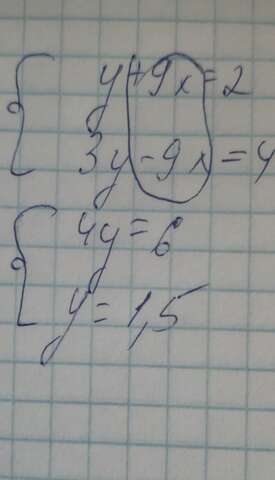 y+9x=2
3y-9x=4
4y=6
y=1,5